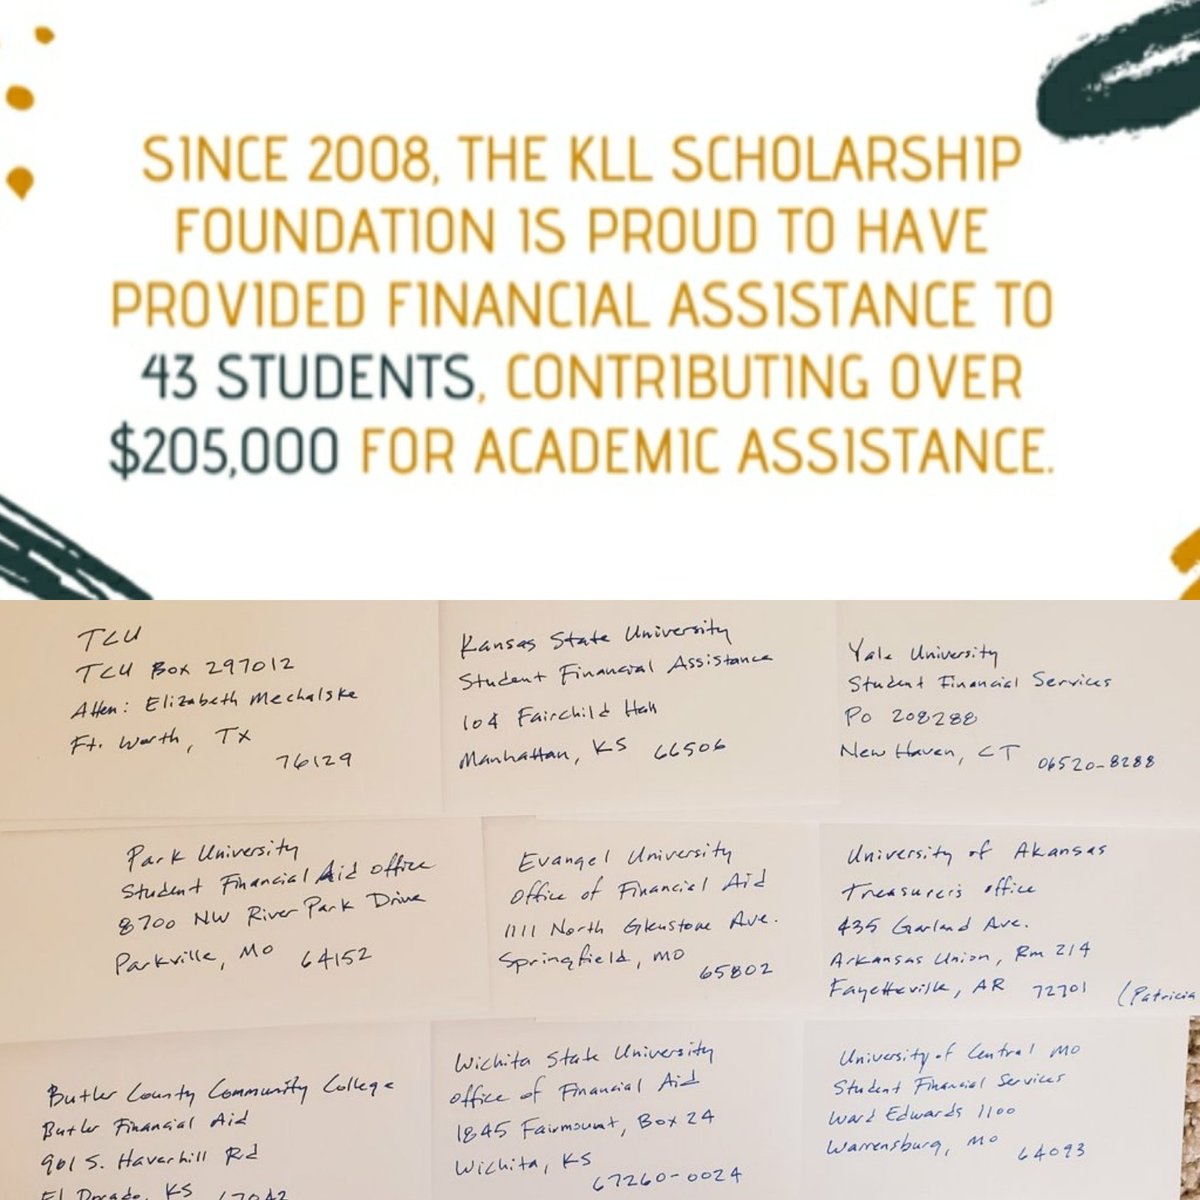 SINCE 2008, THE KLL SCHOLARSHIP
FOUNDATION IS PROUD TO HAVE
PROVIDED FINANCIAL ASSISTANCE TO
43 STUDENTS, CONTRIBUTING OVER
$205,000 FOR ACADEMIC ASSISTANCE.
TCU
TCU Box 297012
Atten: Elizabeth Mechalske
Ft. Worth, TX
76129
Kansas State University
Student Financial Assistance
104 Fairchild Hall
Manhattan, KS 66506
Yale University
Student Financial Services
PO 208288
New Haven, CT 06520-8288
Park University
Student Financial Aid Office
8700 NW River Park Drive
Parkville, MO 64152
Evangel University
Office of Financial Aid
1111 North Glenstone Ave.
Springfield, MO
65802
University of Akansas
Treasurer's Office
435 Garland Ave.
Arkansas Union, Rm 214
Fayetteville, AR 72701 (Patricia
Butler County Community College
Butler Financial Aid
901 S. Haverhill Rd
El Dorado, KS 67042
Wichita State University
Office of Financial Aid
1845 Fairmount, Box 24
Wichita, KS
67260-0024
University of Central MO
Student Financial Services
Ward Edwards 1100
Warrensburg, MO 64093